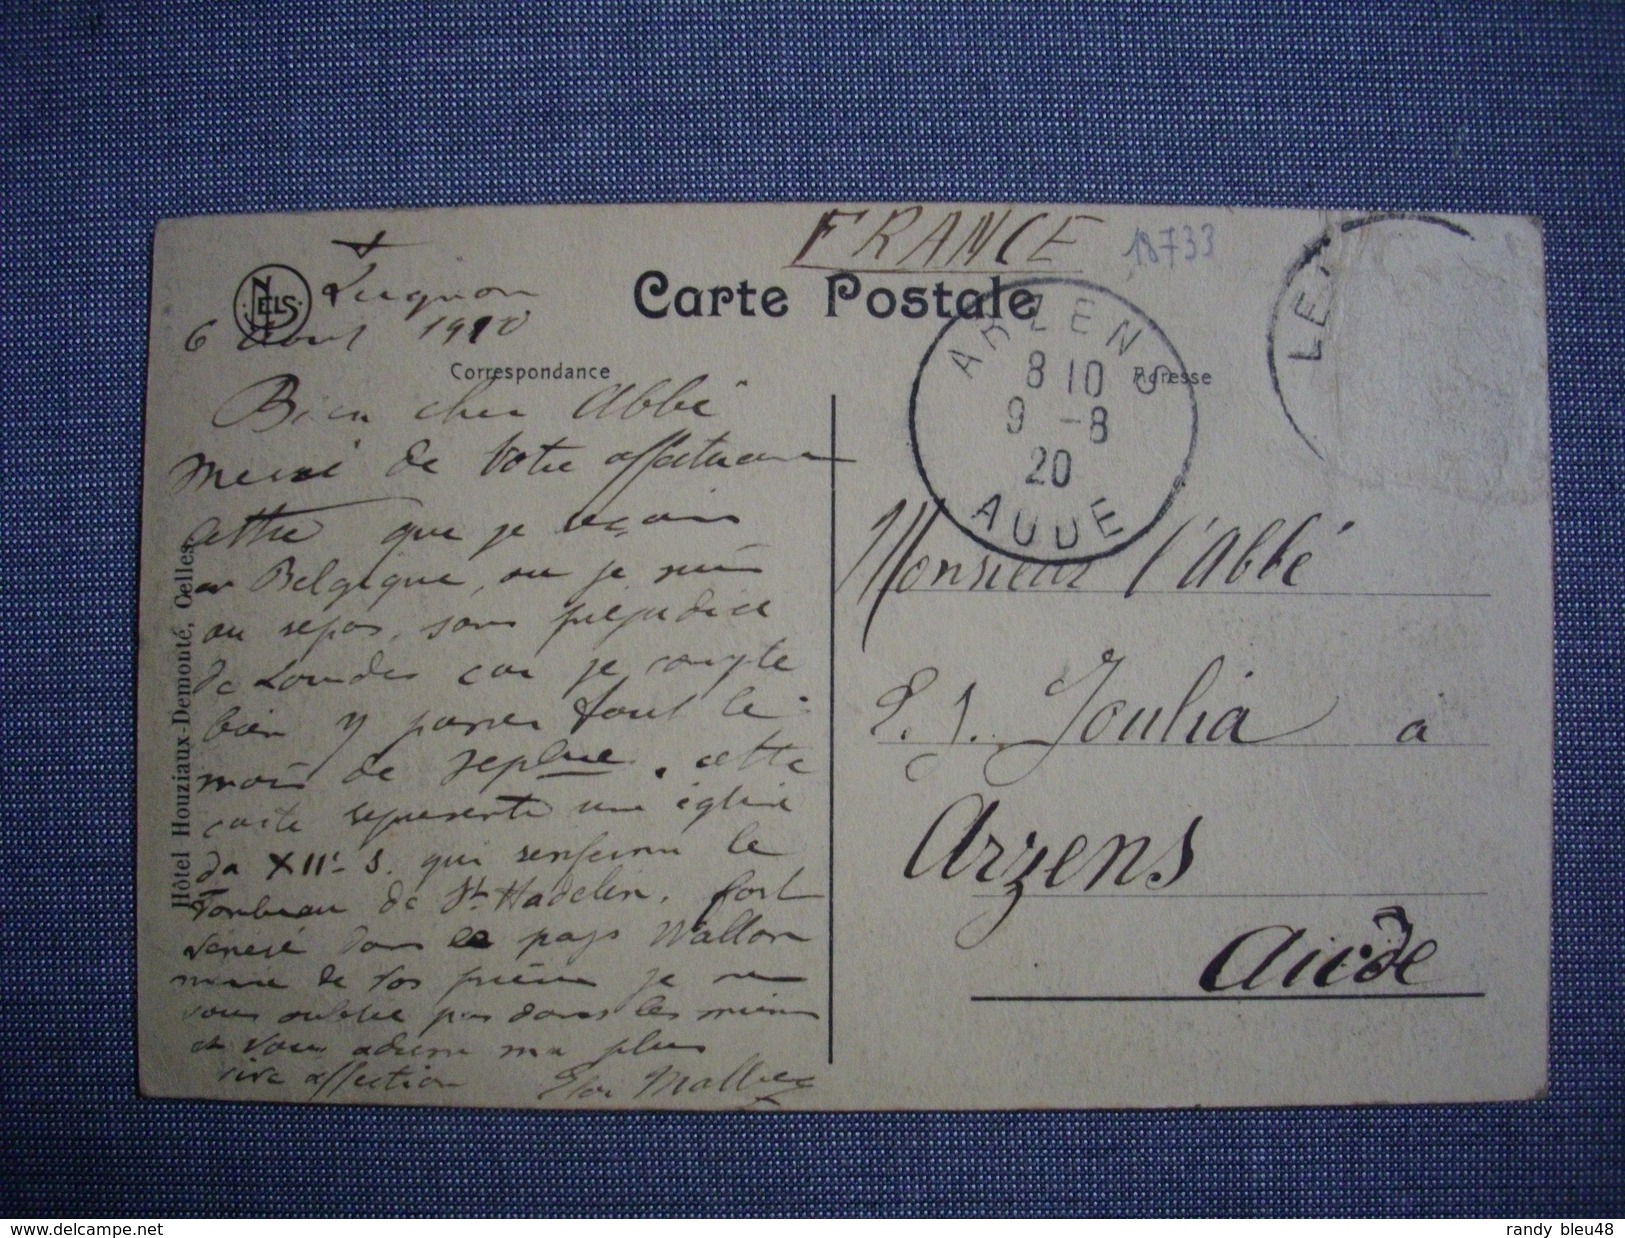 FRANCE
18733
NELS
Carte Postale
Correspondance
Adresse
Hôtel Houziaux-Demonté, Celles.
ARZENS
8 10
9 -8
20
AUDE
LE
6 Aout 1920
Bien cher Abbé
merci de votre affectueuse
lettre que je reçois
en Belgique, ou je suis
au repos, sans préjudice
de Lourdes car je compte
bien y passer tout le
mois de 7embre. cette
carte represente une église
du XIIe s. qui renferme le
Tombeau de St Hadelin, fort
vénéré dans le pays Wallon
merci de vos prières je ne
vous oublie pas dans les miennes
et vous adresse ma plus
vive affection
Monsieur l'Abbé
Joulia a
Arzens
Aude
www.delcampe.net
randy_bleu48